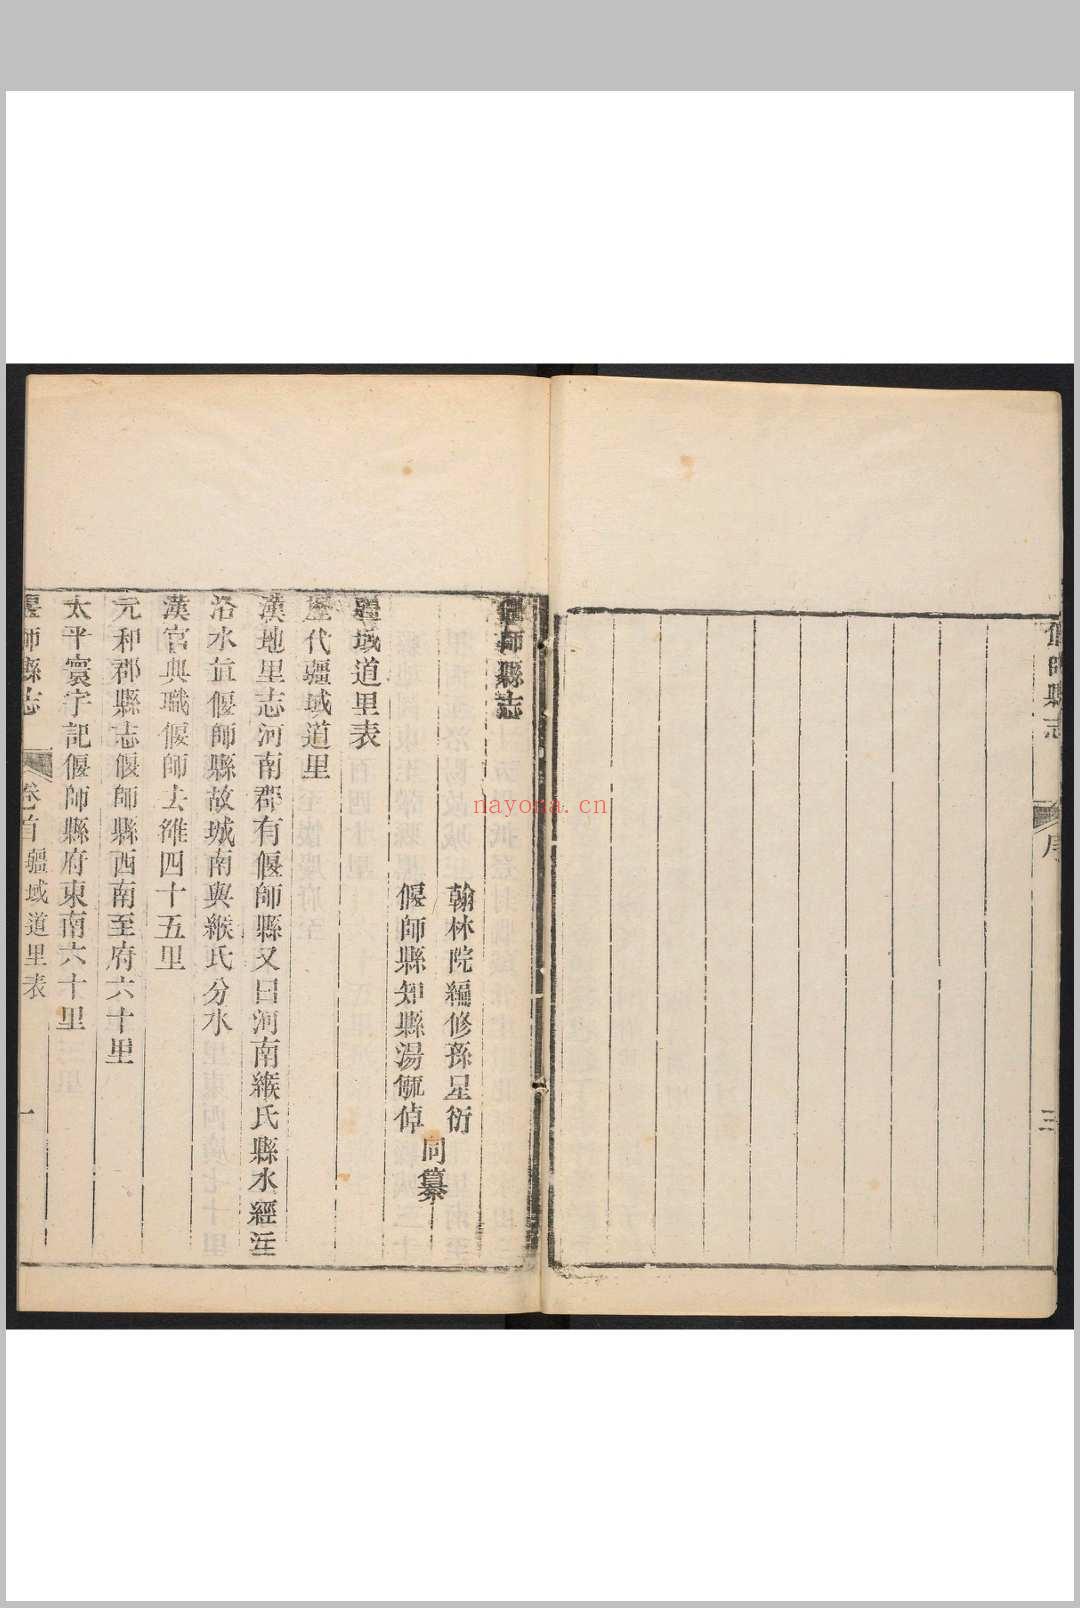 偃師縣志
序
三
偃師縣志
翰林院編修孫星衍
偃師縣知縣湯毓倬
同纂
疆域道里表
歷代疆域道里
漢地里志河南郡有偃師縣又曰河南緱氏縣水經注
洛水逕偃師縣故城南與緱氏分水
漢官典職偃師去雒四十五里
元和郡縣志偃師縣西南至府六十里
太平寰宇記偃師縣府東南六十里
偃師縣志
卷首
疆域道里表
一
nayona.cn